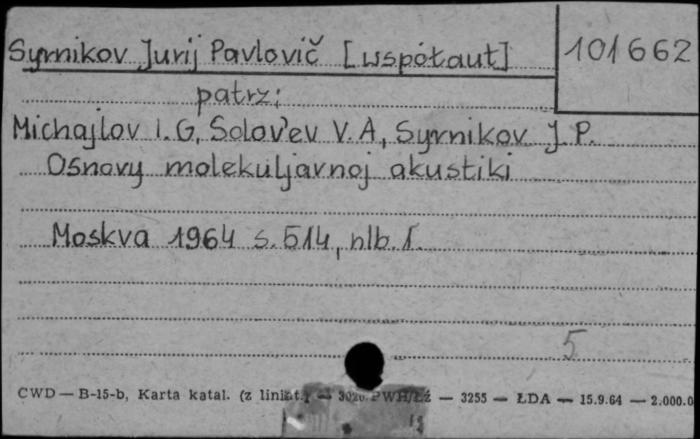 Syrnikov Jurij Pavlovič [współaut]
101662
patrz:
Michajlov I. G, Solov'ev V. A, Syrnikov J. P.
Osnovy molekuljarnoj akustiki
Moskva 1964 s. 514, nlb. 1.
5
CWD — B-15-b, Karta katal. (z liniat.) — 3026. PWH/Łź — 3255 — ŁDA — 15.9.64 — 2.000.0